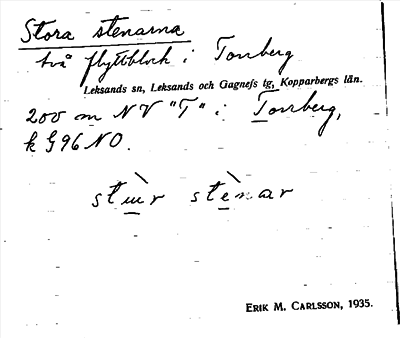 Stora stenarna
två flyttblock i Torrberg
Leksands sn, Leksands och Gagnefs tg, Kopparbergs län.
200 m NV "T" i Torrberg,
k G96 NO.
stɯ̀r stènar
ERIK M. CARLSSON, 1935.